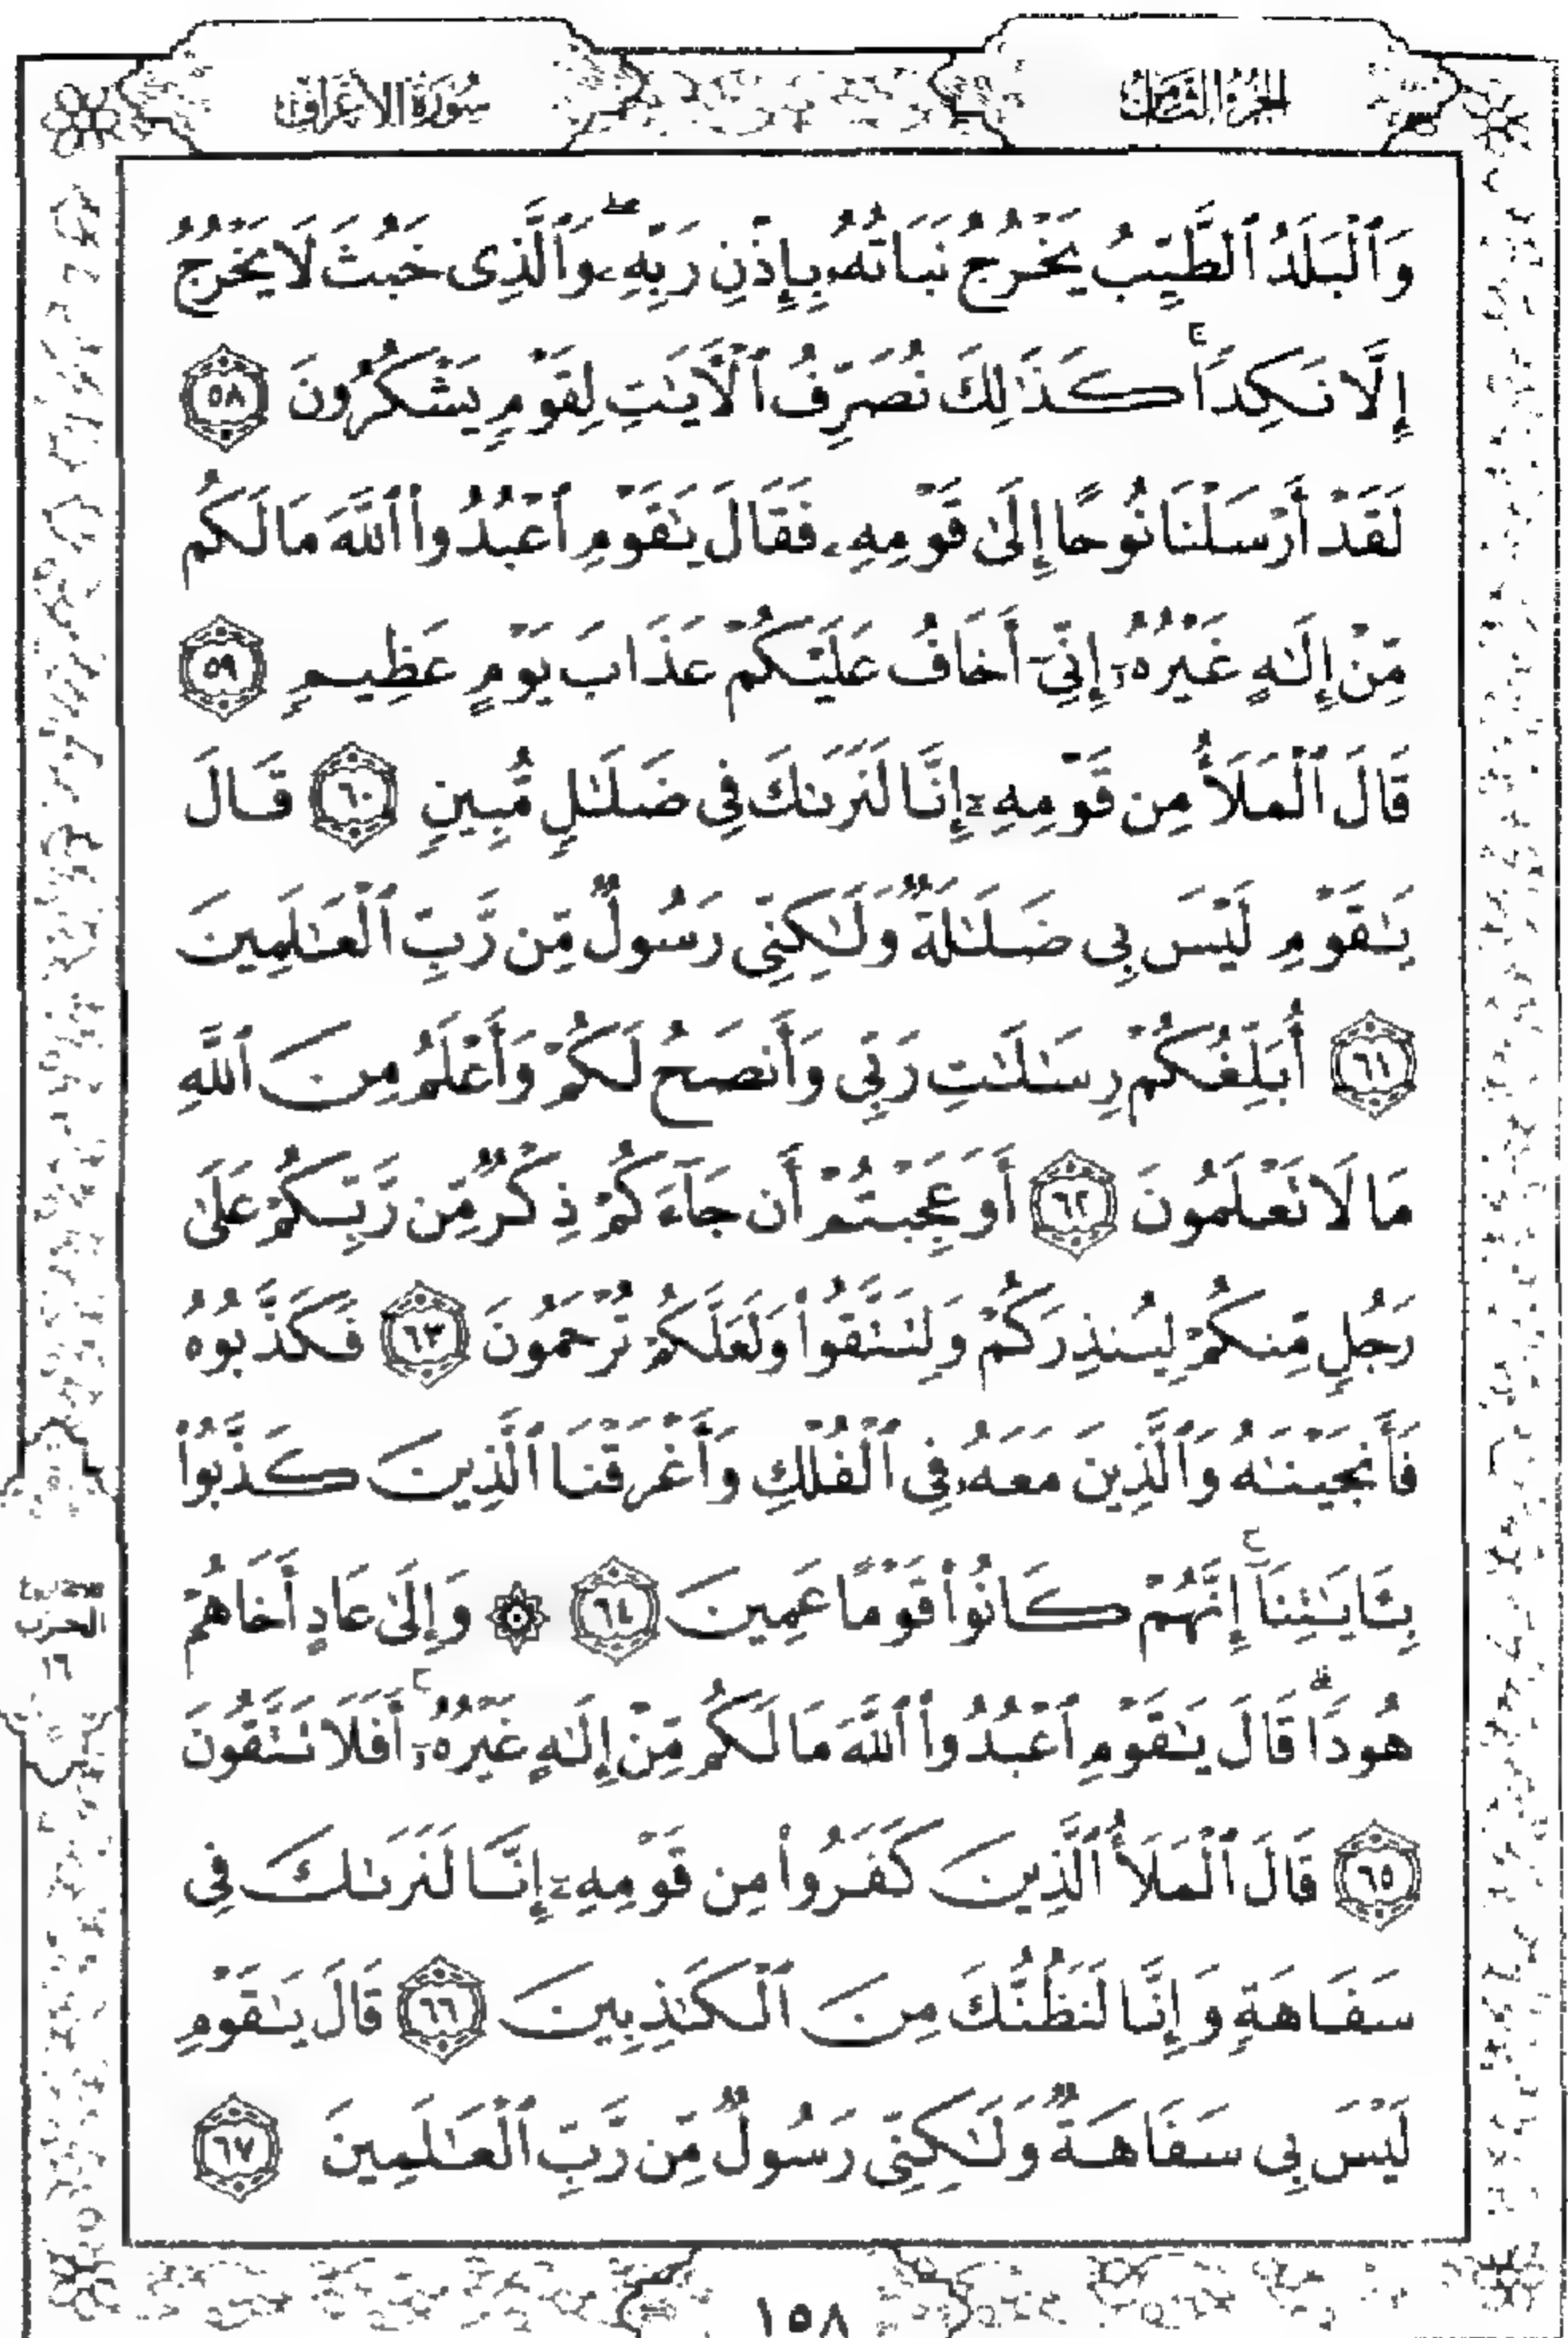 الجزء الثامن
سورة الأعراف
وَٱلْبَلَدُ ٱلطَّيِّبُ يَخْرُجُ نَبَاتُهُۥ بِإِذْنِ رَبِّهِۦ ۖ وَٱلَّذِى خَبُثَ لَا يَخْرُجُ
إِلَّا نَكِدًا ۚ كَذَٰلِكَ نُصَرِّفُ ٱلْـَٔايَٰتِ لِقَوْمٍ يَشْكُرُونَ ٥٨
لَقَدْ أَرْسَلْنَا نُوحًا إِلَىٰ قَوْمِهِۦ فَقَالَ يَٰقَوْمِ ٱعْبُدُوا۟ ٱللَّهَ مَا لَكُم
مِّنْ إِلَٰهٍ غَيْرُهُۥٓ إِنِّىٓ أَخَافُ عَلَيْكُمْ عَذَابَ يَوْمٍ عَظِيمٍ ٥٩
قَالَ ٱلْمَلَأُ مِن قَوْمِهِۦٓ إِنَّا لَنَرَىٰكَ فِى ضَلَٰلٍ مُّبِينٍ ٦٠ قَالَ
يَٰقَوْمِ لَيْسَ بِى ضَلَٰلَةٌ وَلَٰكِنِّى رَسُولٌ مِّن رَّبِّ ٱلْعَٰلَمِينَ
٦١ أُبَلِّغُكُمْ رِسَٰلَٰتِ رَبِّى وَأَنصَحُ لَكُمْ وَأَعْلَمُ مِنَ ٱللَّهِ
مَا لَا تَعْلَمُونَ ٦٢ أَوَعَجِبْتُمْ أَن جَآءَكُمْ ذِكْرٌ مِّن رَّبِّكُمْ عَلَىٰ
رَجُلٍ مِّنكُمْ لِيُنذِرَكُمْ وَلِتَتَّقُوا۟ وَلَعَلَّكُمْ تُرْحَمُونَ ٦٣ فَكَذَّبُوهُ
فَأَنجَيْنَٰهُ وَٱلَّذِينَ مَعَهُۥ فِى ٱلْفُلْكِ وَأَغْرَقْنَا ٱلَّذِينَ كَذَّبُوا۟
بِـَٔايَٰتِنَآ ۚ إِنَّهُمْ كَانُوا۟ قَوْمًا عَمِينَ ٦٤ ۞ وَإِلَىٰ عَادٍ أَخَاهُمْ
هُودًا ۗ قَالَ يَٰقَوْمِ ٱعْبُدُوا۟ ٱللَّهَ مَا لَكُم مِّنْ إِلَٰهٍ غَيْرُهُۥٓ ۚ أَفَلَا تَتَّقُونَ
٦٥ قَالَ ٱلْمَلَأُ ٱلَّذِينَ كَفَرُوا۟ مِن قَوْمِهِۦٓ إِنَّا لَنَرَىٰكَ فِى
سَفَاهَةٍ وَإِنَّا لَنَظُنُّكَ مِنَ ٱلْكَٰذِبِينَ ٦٦ قَالَ يَٰقَوْمِ
لَيْسَ بِى سَفَاهَةٌ وَلَٰكِنِّى رَسُولٌ مِّن رَّبِّ ٱلْعَٰلَمِينَ ٦٧
الحزب
١٦
١٥٨